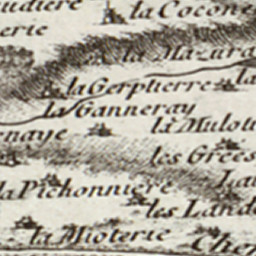 udiere
la Cocone
erie
la Mazura
la Gerptierre
la
la Ganneray
rnaye
la Mulot
les Grées
la Pichonniere
les Land
la Mioterie
Che